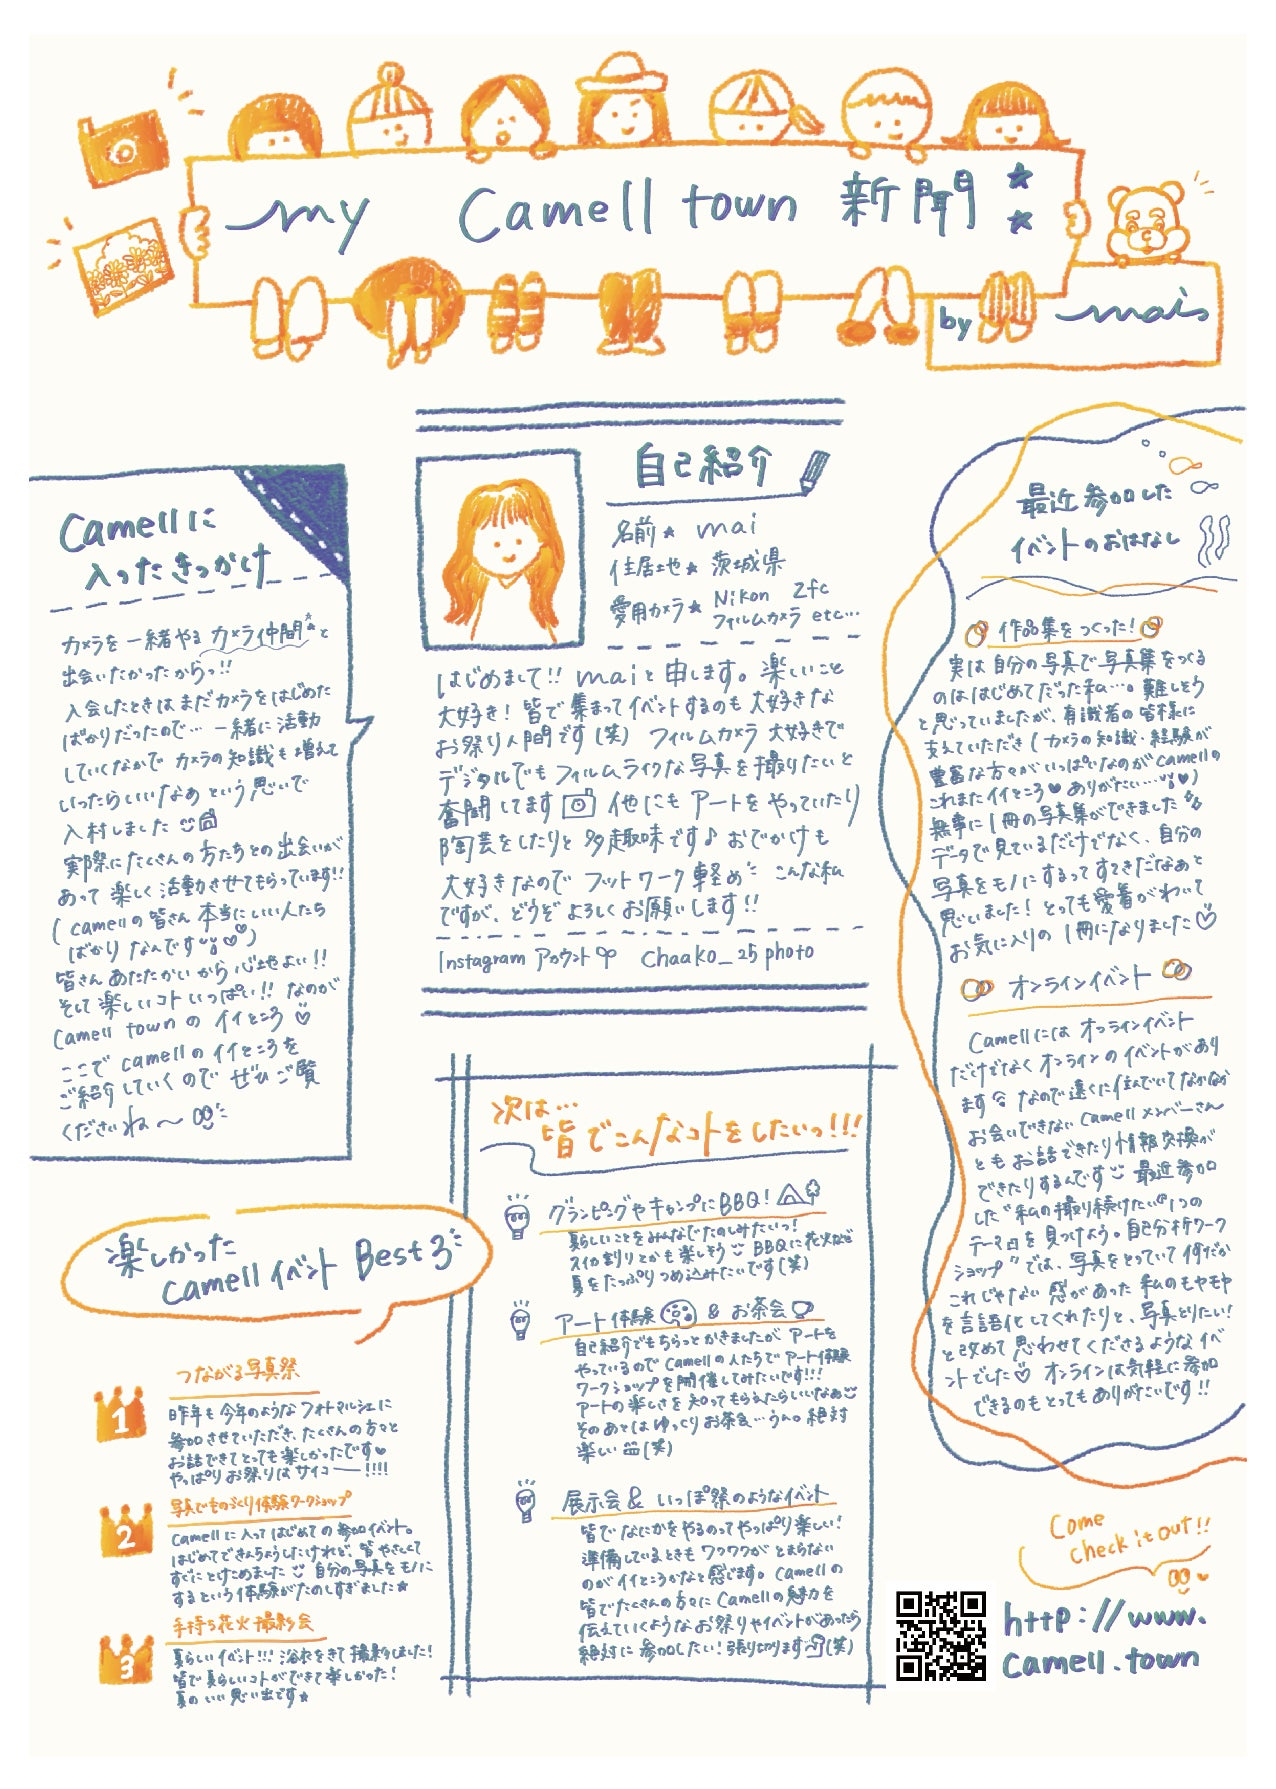 my Camell town 新聞
by mais
Camellに
入ったきっかけ
カメラを一緒やる カメラ仲間と
出会いたかったからっ!!
入会したときは まだカメラをはじめた
ばかりだったので… 一緒に活動
していくなかで カメラの知識も増えて
いったらいいなぁ という思いで
入村しました
実際に たくさんの方たちとの出会いが
あって 楽しく活動させてもらっています!!
(camellの皆さん 本当にいい人たち
ばかり なんです)
皆さん あたたかいから 心地よい!!
そして 楽しいコト いっぱい!! なのが
Camell town の イイところ
ここで camellの イイところを
ご紹介していくので ぜひ ご覧
くださいね〜
自己紹介
名前★ mai
住居地★ 茨城県
愛用カメラ★ Nikon Zfc
フィルムカメラ etc…
はじめまして!! maiと申します。楽しいこと
大好き! 皆で集まってイベントするのも大好きな
お祭り人間です(笑) フィルムカメラ大好きで
デジタルでもフィルムライクな写真を撮りたいと
奮闘してます 他にも アートを やっていたり
陶芸をしたりと 多趣味です♪ おでかけも
大好きなので フットワーク軽め こんな私
ですが、どうぞ よろしくお願いします!!
Instagram アカウント chaako_25photo
最近参加した
イベントのおはなし
作品集をつくった!
実は自分の写真で写真集をつくる
のははじめてだった私…。難しそう
と思っていましたが、有識者の皆様に
支えていただき(カメラの知識・経験が
豊富な方々がいっぱいなのがcamellの
これまたイイところ♥ありがたい…♥)
無事に1冊の写真集ができました
データで見ているだけでなく、自分の
写真をモノにするってすてきだなぁと
思いました! とっても愛着がわいて
お気に入りの 1冊になりました♡
オンラインイベント
Camellには オフラインイベント
だけでなく オンラインのイベントがあり
ます なので遠くに住んでいてなかなか
お会いできない Camellメンバーさん
とも お話できたり情報交換が
できたりするんです 最近参加
した“私の撮り続けたい“1つの
テーマ”を見つけよう。自己分析ワーク
ショップ”では、写真をとっていて何だか
これじゃない 感があった 私のもやもや
を言語化してくれたりと、写真とりたい!
と改めて思わせてくださるようなイベ
ントでした♡ オンラインは気軽に参加
できるのもとってもありがたいです!!
次は…
皆でこんなコトをしたいっ!!!
グランピングやキャンプにBBQ!
夏らしいことをみんなでたのしみたいっ!
スイカ割りとかも楽しそう BBQに花火など
夏をたっぷりつめ込みたいです(笑)
アート体験 & お茶会
自己紹介でもちらっとかきましたが アートを
やっているので Camellの人たちで アート体験
ワークショップを開催してみたいです!!!
アートの楽しさを 知ってもらえたらいいなぁ
そのあとは ゆっくり お茶会…うん。絶対
楽しい (笑)
展示会& いっぽ祭のようなイベント
皆で なにかをやるのって やっぱり 楽しい!
準備しているときも ワクワクが とまらない
のが イイところかなと感じます。Camellの
皆でたくさんの方々に Camellの魅力を
伝えていくようなお祭りやイベントがあったら
絶対に 参加したい! 張り切ります(笑)
楽しかった
camellイベント Best3
つながる写真祭
1
昨年も 今年のような フォトマルシェに
参加させていただき、たくさんの方々と
お話できてとっても楽しかったです♥
やっぱり お祭りは サイコー!!!!
写真でものづくり体験ワークショップ
2
Camellに入ってはじめての 参加イベント。
はじめてできんちょうしたけれど、皆やさしくて
すぐにとけこめました 自分の写真を モノに
するという体験がたのしすぎました★
手持ち花火撮影会
3
夏らしいイベント!!! 浴衣をきて撮影しました!
皆で夏らしいコトができて楽しかった!
夏の いい 思い出です★
Come
check it out!!
http://www.
camell.town